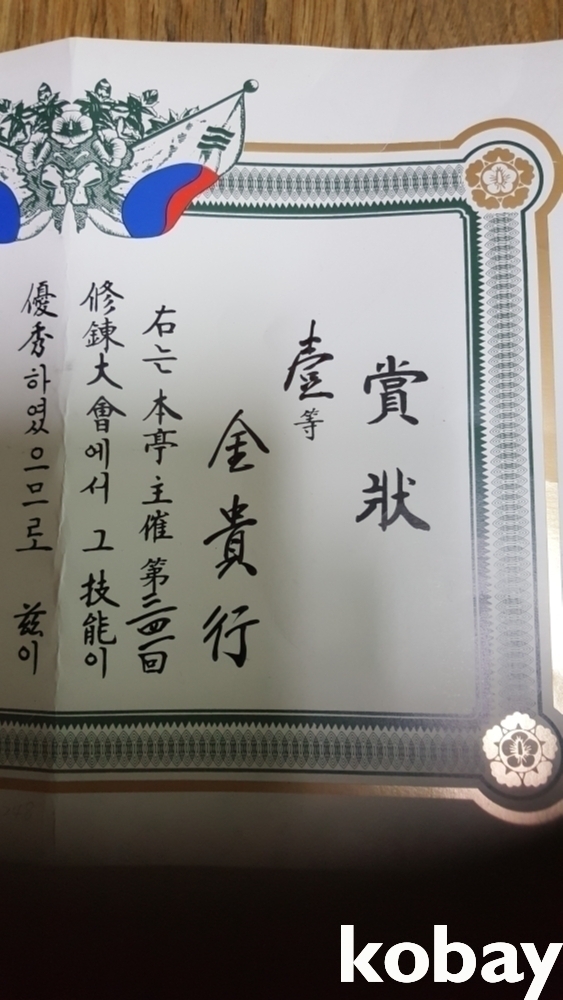 賞狀
壹等
金貴行
右는 本亭 主催 第三四回
修鍊大會에서 그 技能이
優秀하였으므로 玆이
kobay